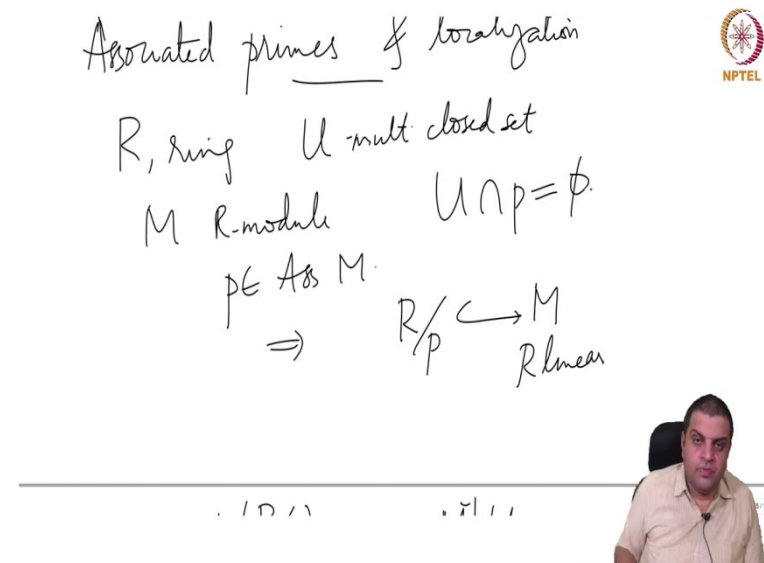 Associated primes & localization
NPTEL
R, ring U - mult. closed set
M R-module U ∩ p = ϕ.
p ∈ Ass M.
⇒ R/p ↪ M
R linear